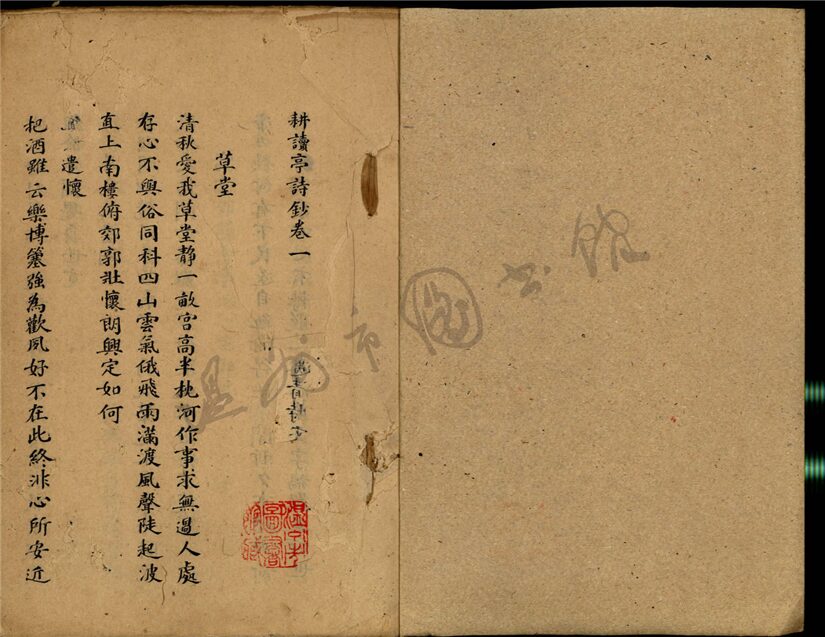 耕讀亭詩鈔卷一
草堂
清秋愛我草堂静一畝宮高半枕河作事求無過人處
存心不與俗同科四山雲氣俄飛雨滿渡風聲陡起波
直上南樓俯郊郭壯懷朗興定如何
遣懷
把酒雖云樂博簺強為歡夙好不在此終非心所安近
温州市图书馆